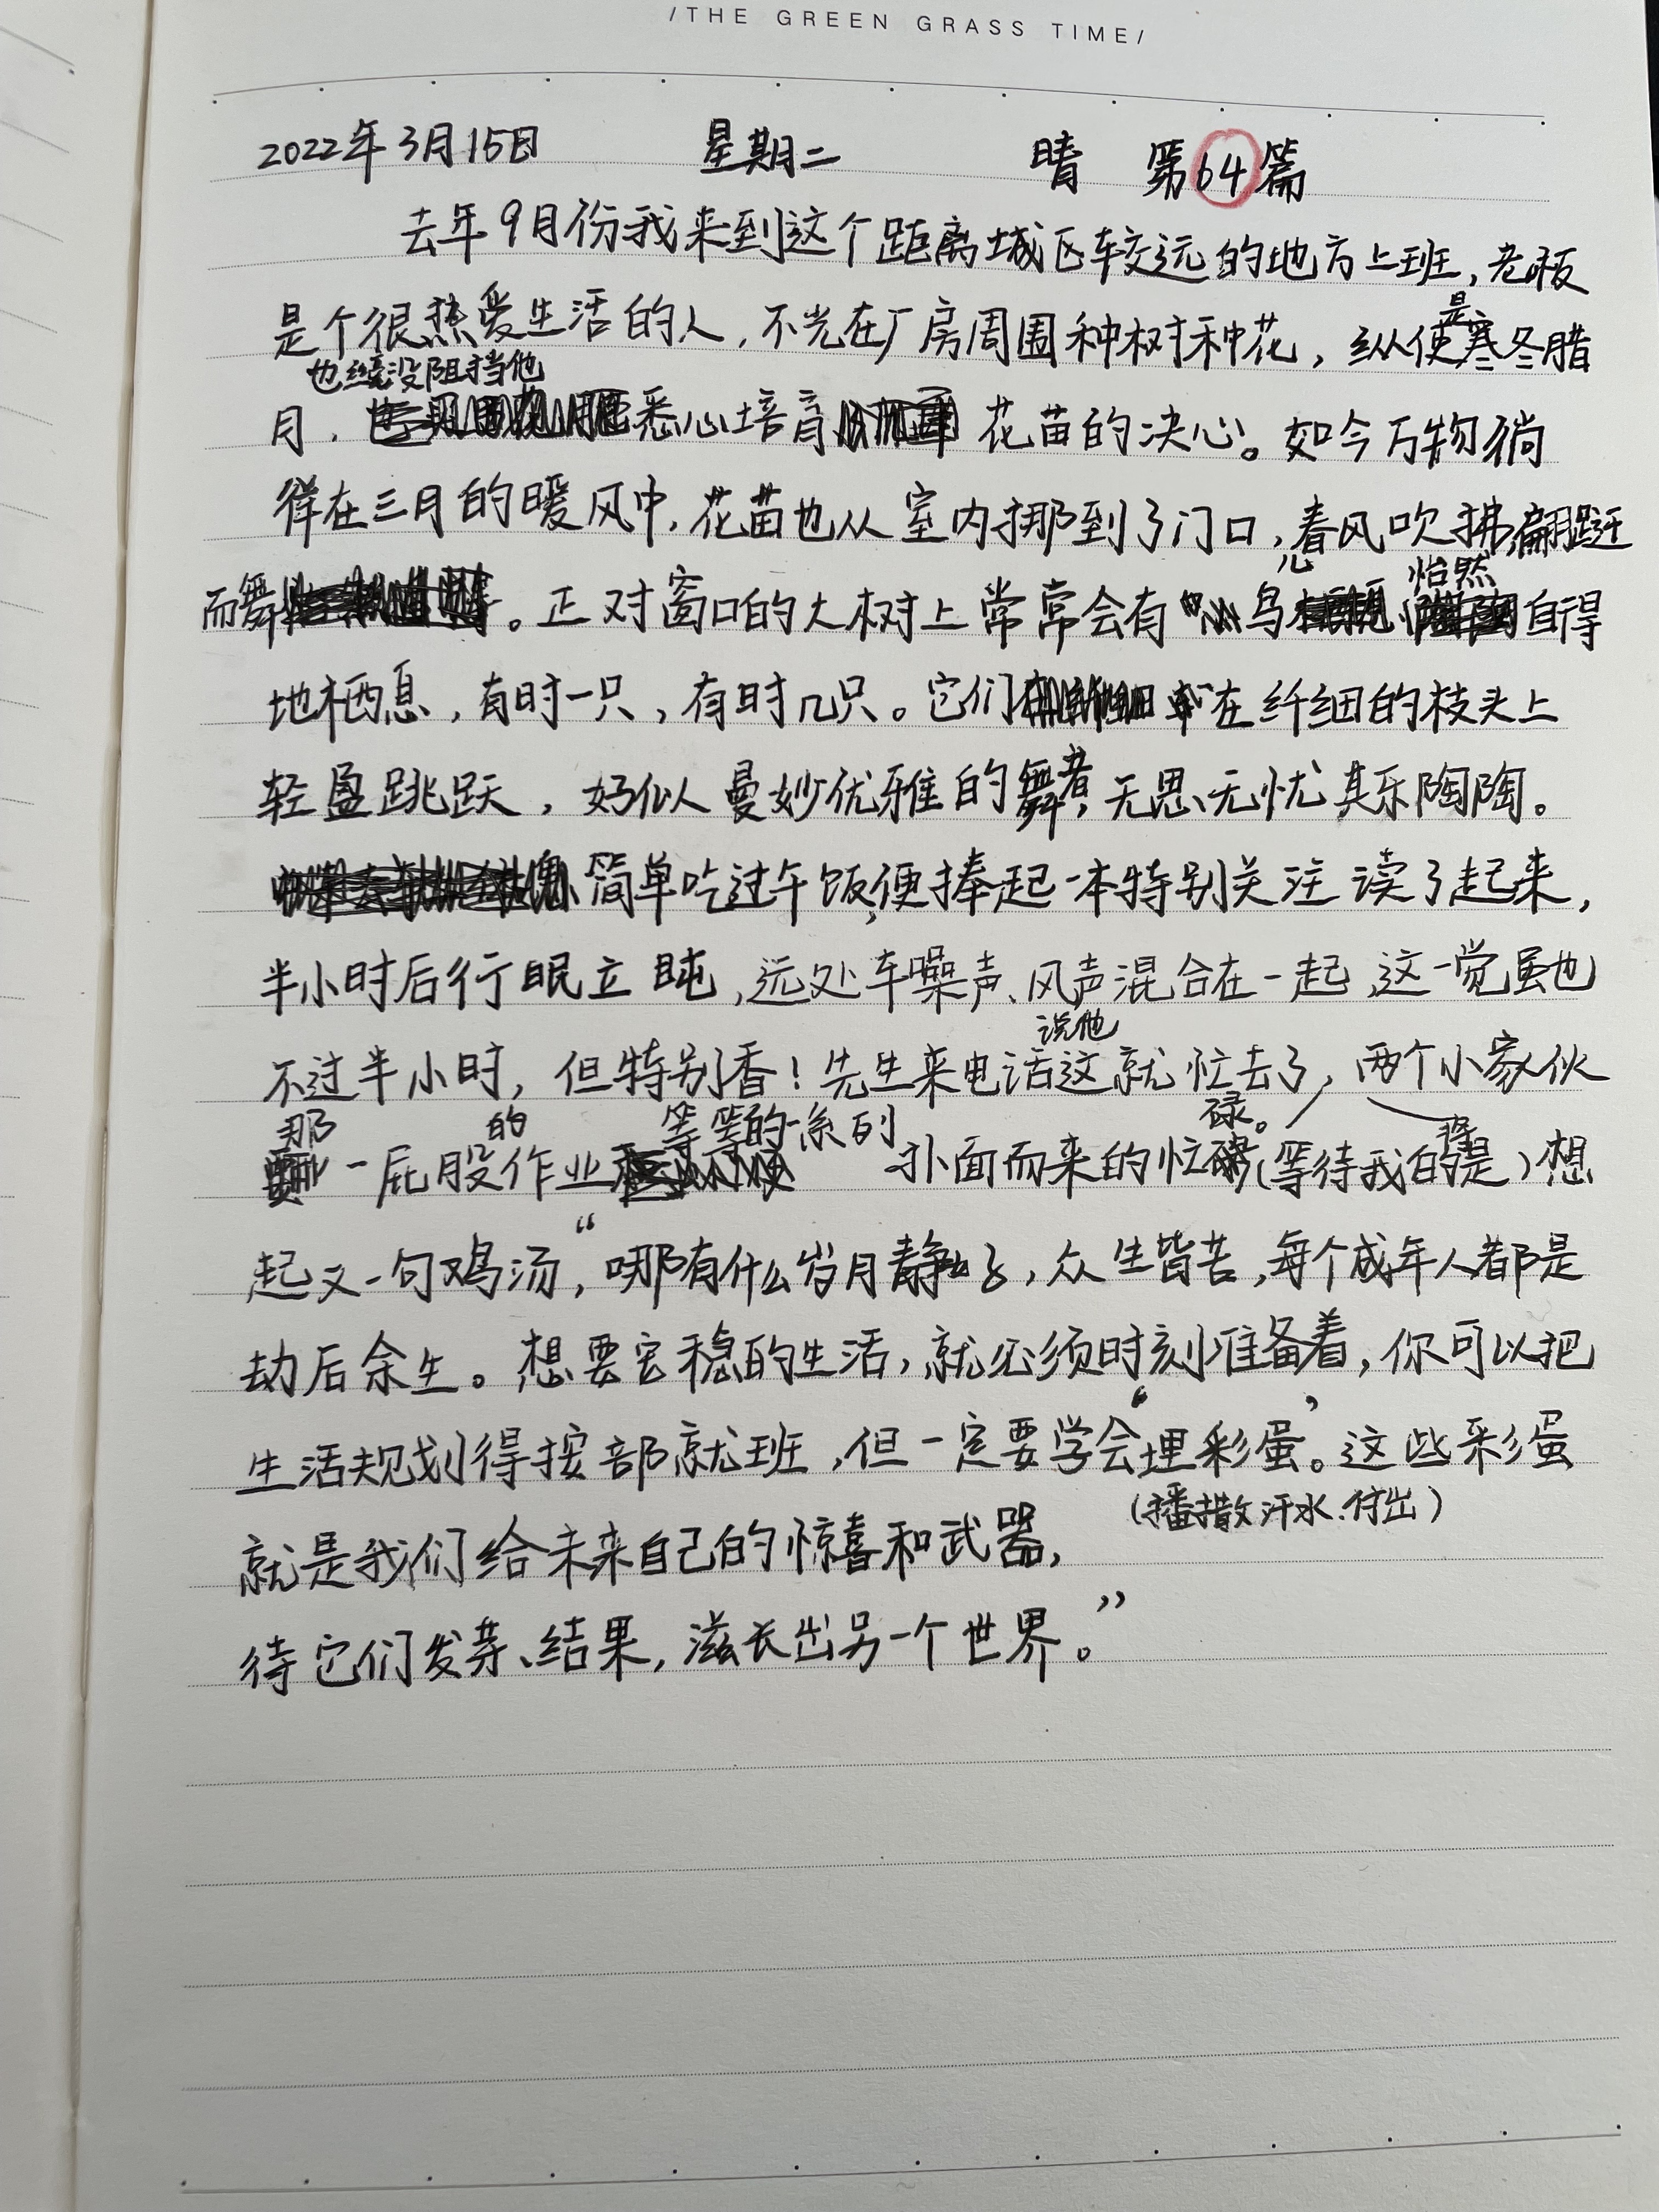 /THE GREEN GRASS TIME/
2022年3月15日 星期二 晴 第64篇
去年9月份我来到这个距离城区较远的地方上班,老板
是个很热爱生活的人,不光在厂房周围种树种花,纵使是寒冬腊
也绝没阻挡他
月,悉心培育花苗的决心。如今万物徜
徉在三月的暖风中,花苗也从室内挪到了门口,春风吹拂,翩跹
而舞。正对窗口的大树上常常会有鸟怡然自得
地栖息,有时一只,有时几只。它们在纤细的枝头上
轻盈跳跃,好似曼妙优雅的舞者,无思无忧其乐陶陶。
简单吃过午饭,便捧起一本特别关注读了起来,
半小时后行眠立盹,远处车噪声、风声混合在一起,这一觉虽也
不过半小时,但特别香!先生来电话说他这就忙去了,两个小家伙
那一屁股的作业等等的一系列扑面而来的忙碌。(等待我的将是)想
起又一句鸡汤,“哪有什么岁月静好,众生皆苦,每个成年人都是
劫后余生。想要安稳的生活,就必须时刻准备着,你可以把
生活规划得按部就班,但一定要学会‘埋彩蛋’。这些彩蛋
(播撒汗水.付出)
就是我们给未来自己的惊喜和武器,
待它们发芽、结果,滋长出另一个世界。”